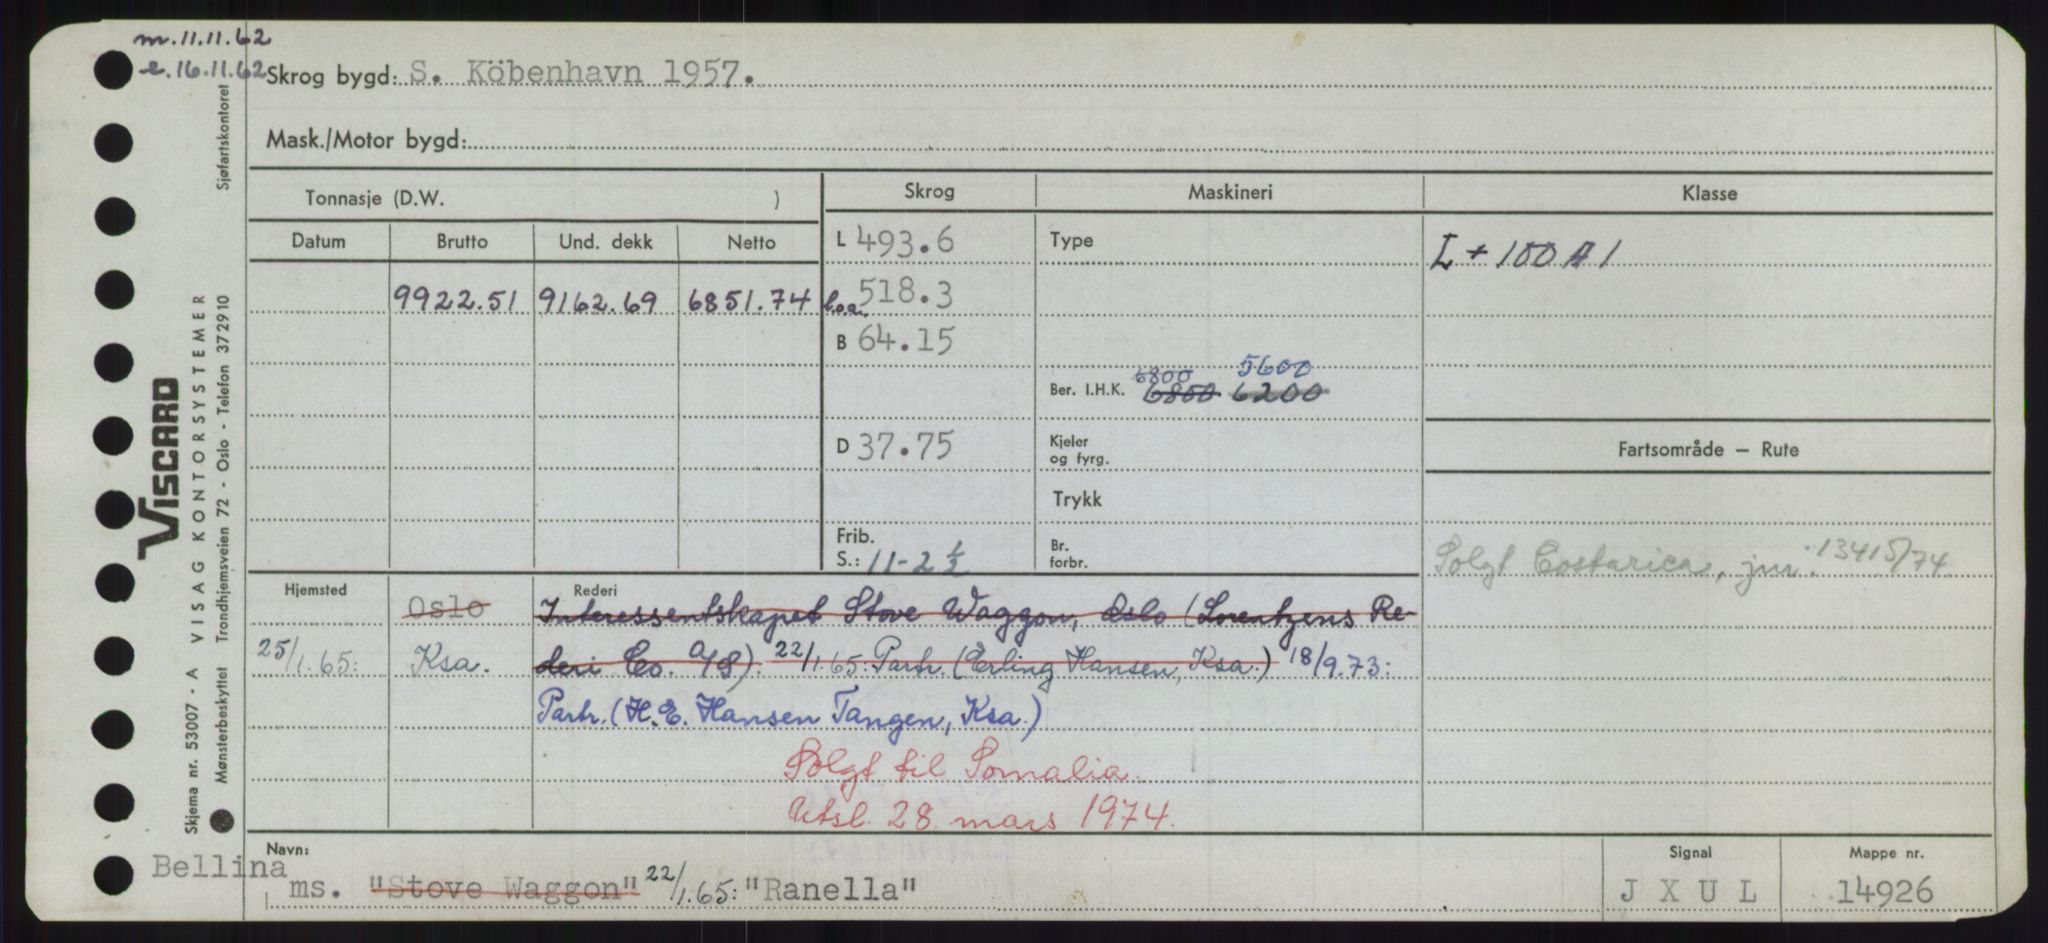 m. 11.11.62
e. 16.11.62
Skrog bygd: S. Köbenhavn 1957.
Mask./Motor bygd:
Tonnasje (D.W. )
Skrog
Maskineri
Klasse
Datum
Brutto
Und. dekk
Netto
9922.51 9162.69 6851.74
L 493.6
Loa. 518.3
B 64.15
D 37.75
Frib.
S.: 11-2½
Type
Ber. I.H.K. 6800 6800 5600 6200
Kjeler
og fyrg.
Trykk
Br.
forbr.
L + 100 A 1
Fartsområde — Rute
Solgt Costarica, jnr. 13415/74
Hjemsted
Rederi
Oslo Interessentskapet Stove Waggon, Oslo (Lorentzens Re-
25/1.65: Ksa. deri Co. A/S). 22/1.65: Partr. (Erling Hansen, Ksa.) 18/9.73:
Partr. (H.E. Hansen Tangen, Ksa.)
Solgt til Somalia.
Utsl. 28. mars 1974.
Navn:
Bellina
ms. "Stove Waggon" 22/1.65: "Ranella"
Signal
J X U L
Mappe nr.
14926
VISCARD
Skjema nr. 53007 - A VISAG KONTORSYSTEMER
Mønsterbeskyttet Trondhjemsveien 72 - Oslo - Telefon 372910 Sjøfartskontoret